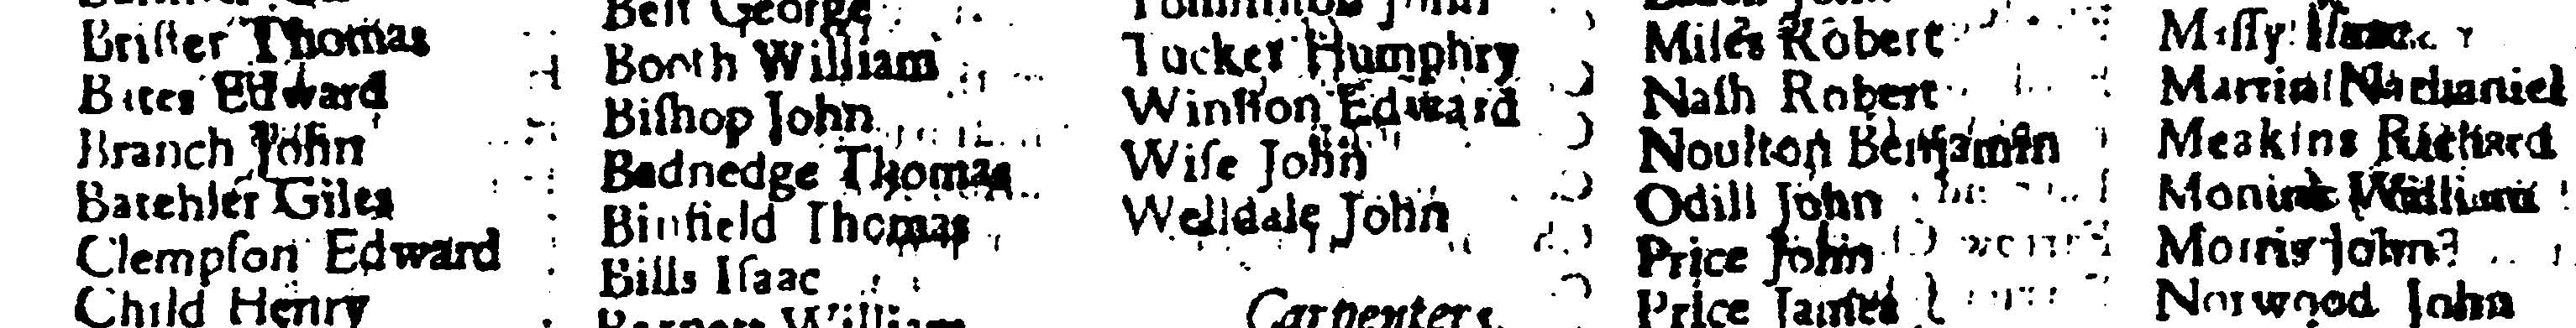 Brister Thomas
Bates Edward
Branch John
Batehler Giles
Clempſon Edward
Child Henry
Belt George
Booth William
Biſhop John
Badnedge Thomas
Binfield Thomas
Bills Iſaac
William
Tucker Humphry
Winſton Edward
Wiſe John
Welldale John
Carpenters.
Miles Robert
Naſh Robert
Noulton Benjamin
Odill John
Price John
Price James
Maſſy Iſaac
Martin Nathaniel
Meakins Richard
William
Morris John
Norwood John